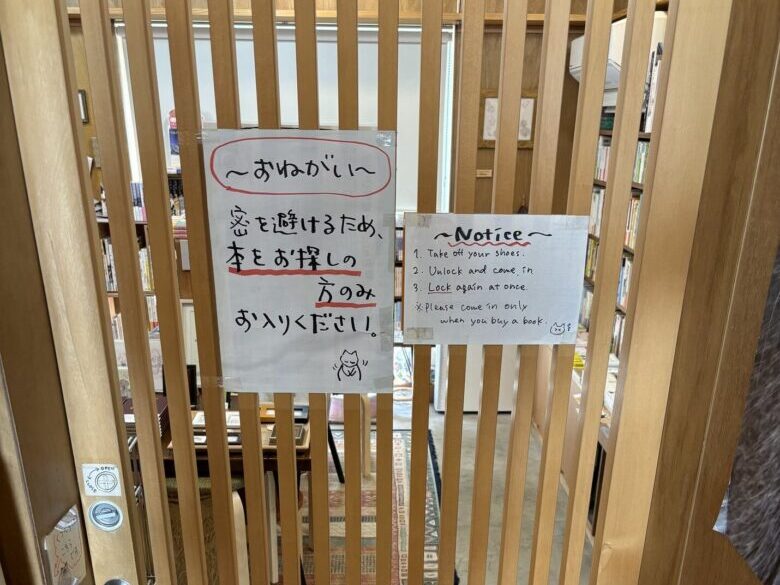 ～おねがい～
密を避けるため、
本をお探しの
方のみ
お入りください。
～Notice～
1. Take off your shoes.
2. Unlock and come in
3. Lock again at once.
※Please come in only
when you buy a book.
OPEN